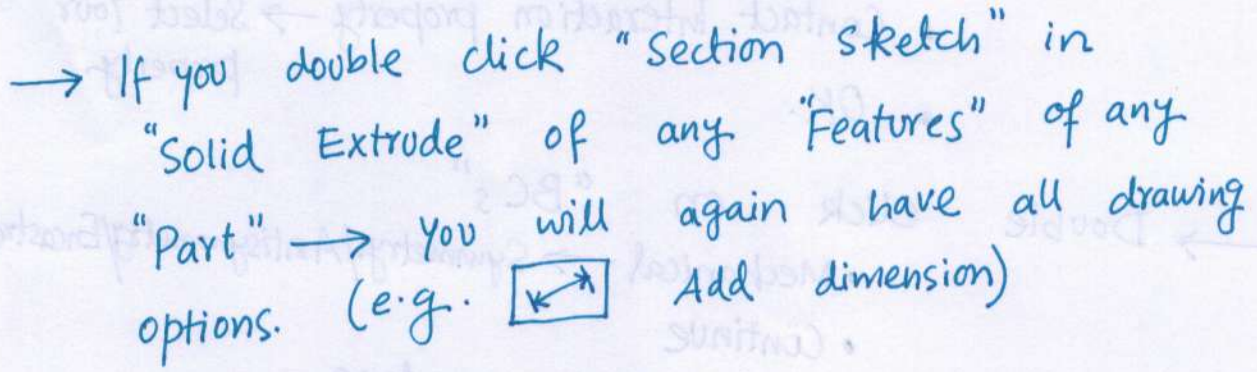 → If you double click "Section sketch" in
"Solid Extrude" of any "Features" of any
"Part" → you will again have all drawing
options. (e.g. Add dimension)